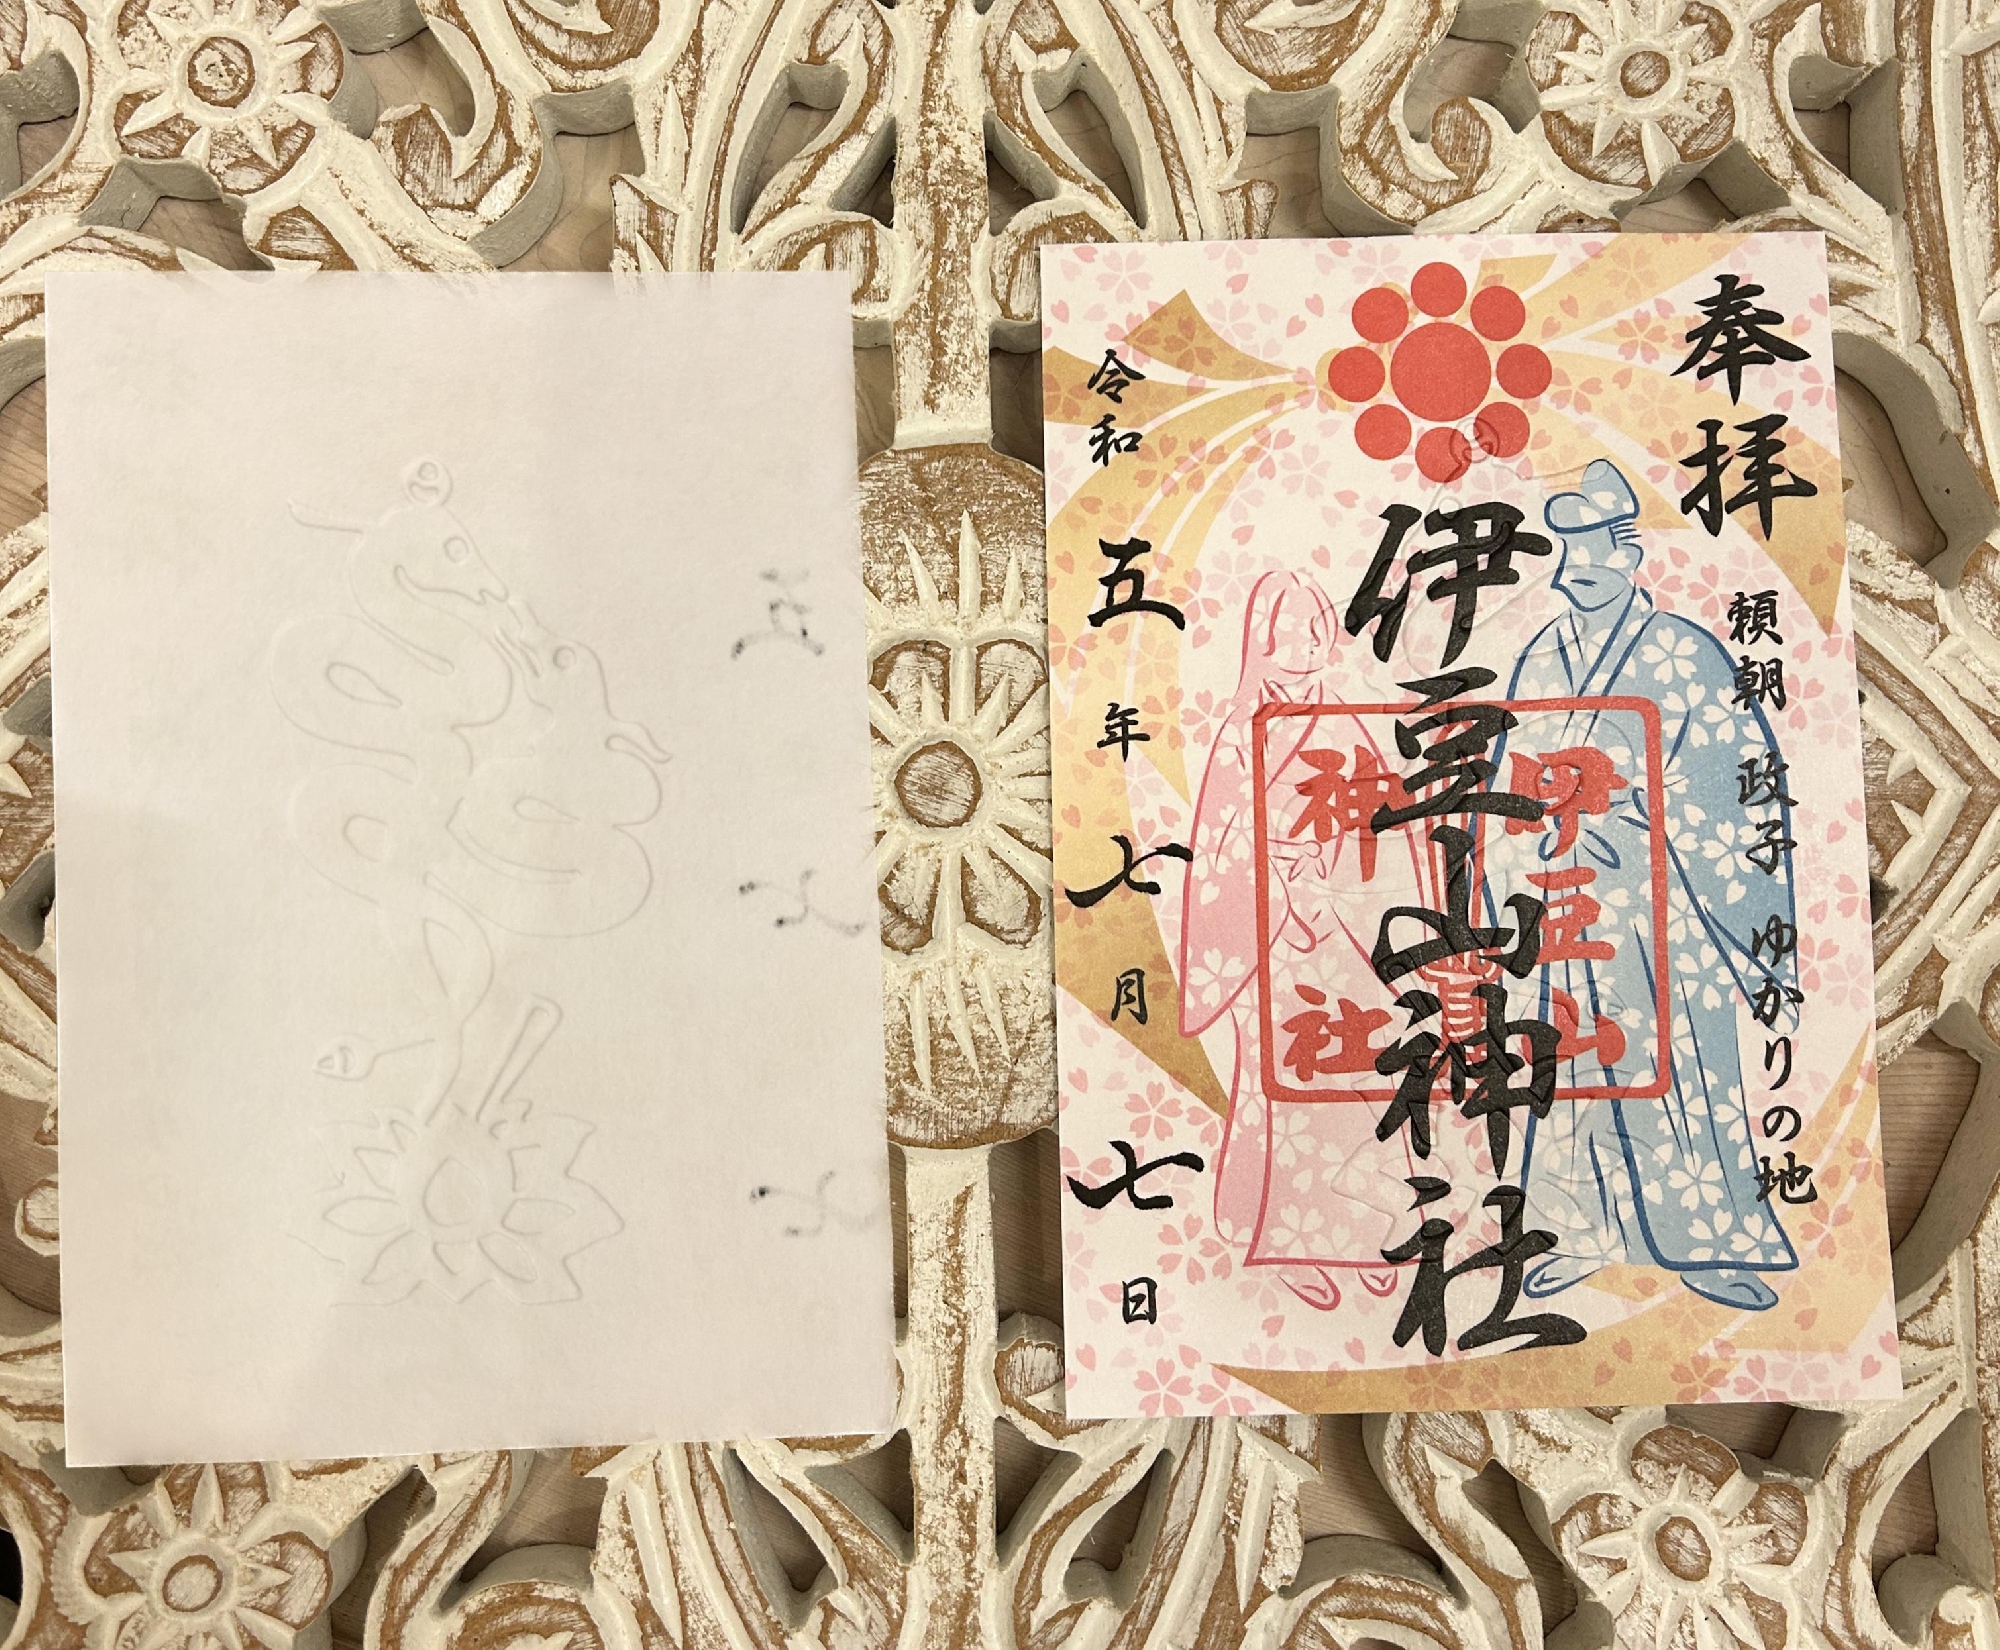 奉拝
頼朝 政子 ゆかりの地
伊豆山神社
伊豆山
神社
令和五年七月七日